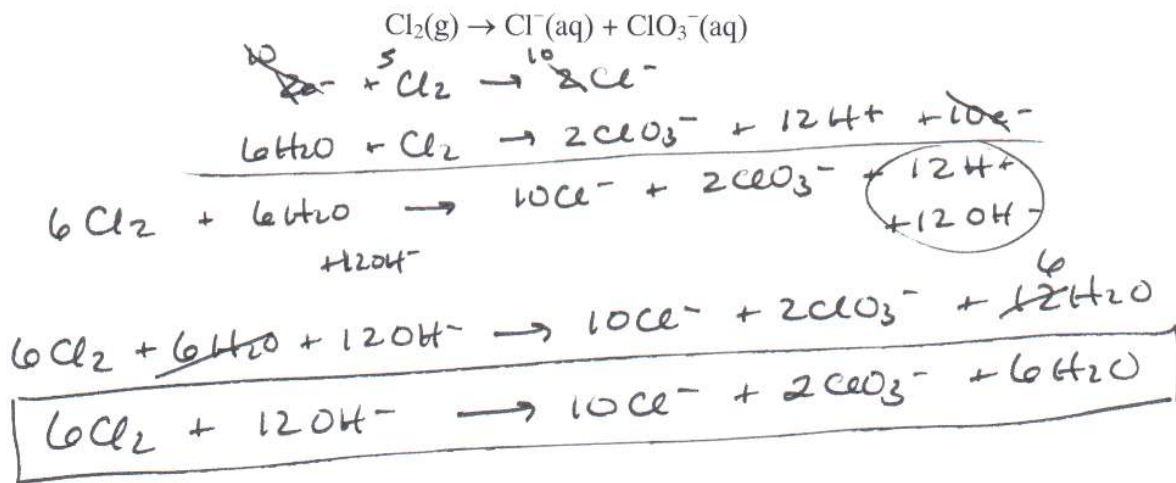 Cl₂(g) → Cl⁻(aq) + ClO₃⁻(aq)
10 2e⁻ + 5 Cl₂ → 10 2Cl⁻
6H₂O + Cl₂ → 2ClO₃⁻ + 12H+ + 10e⁻
6Cl₂ + 6H₂O → 10Cl⁻ + 2ClO₃⁻ + 12H+
+12OH⁻ +12OH⁻
6Cl₂ + 6H₂O + 12OH⁻ → 10Cl⁻ + 2ClO₃⁻ + 12 6 H₂O
6Cl₂ + 12OH⁻ → 10Cl⁻ + 2ClO₃⁻ + 6H₂O